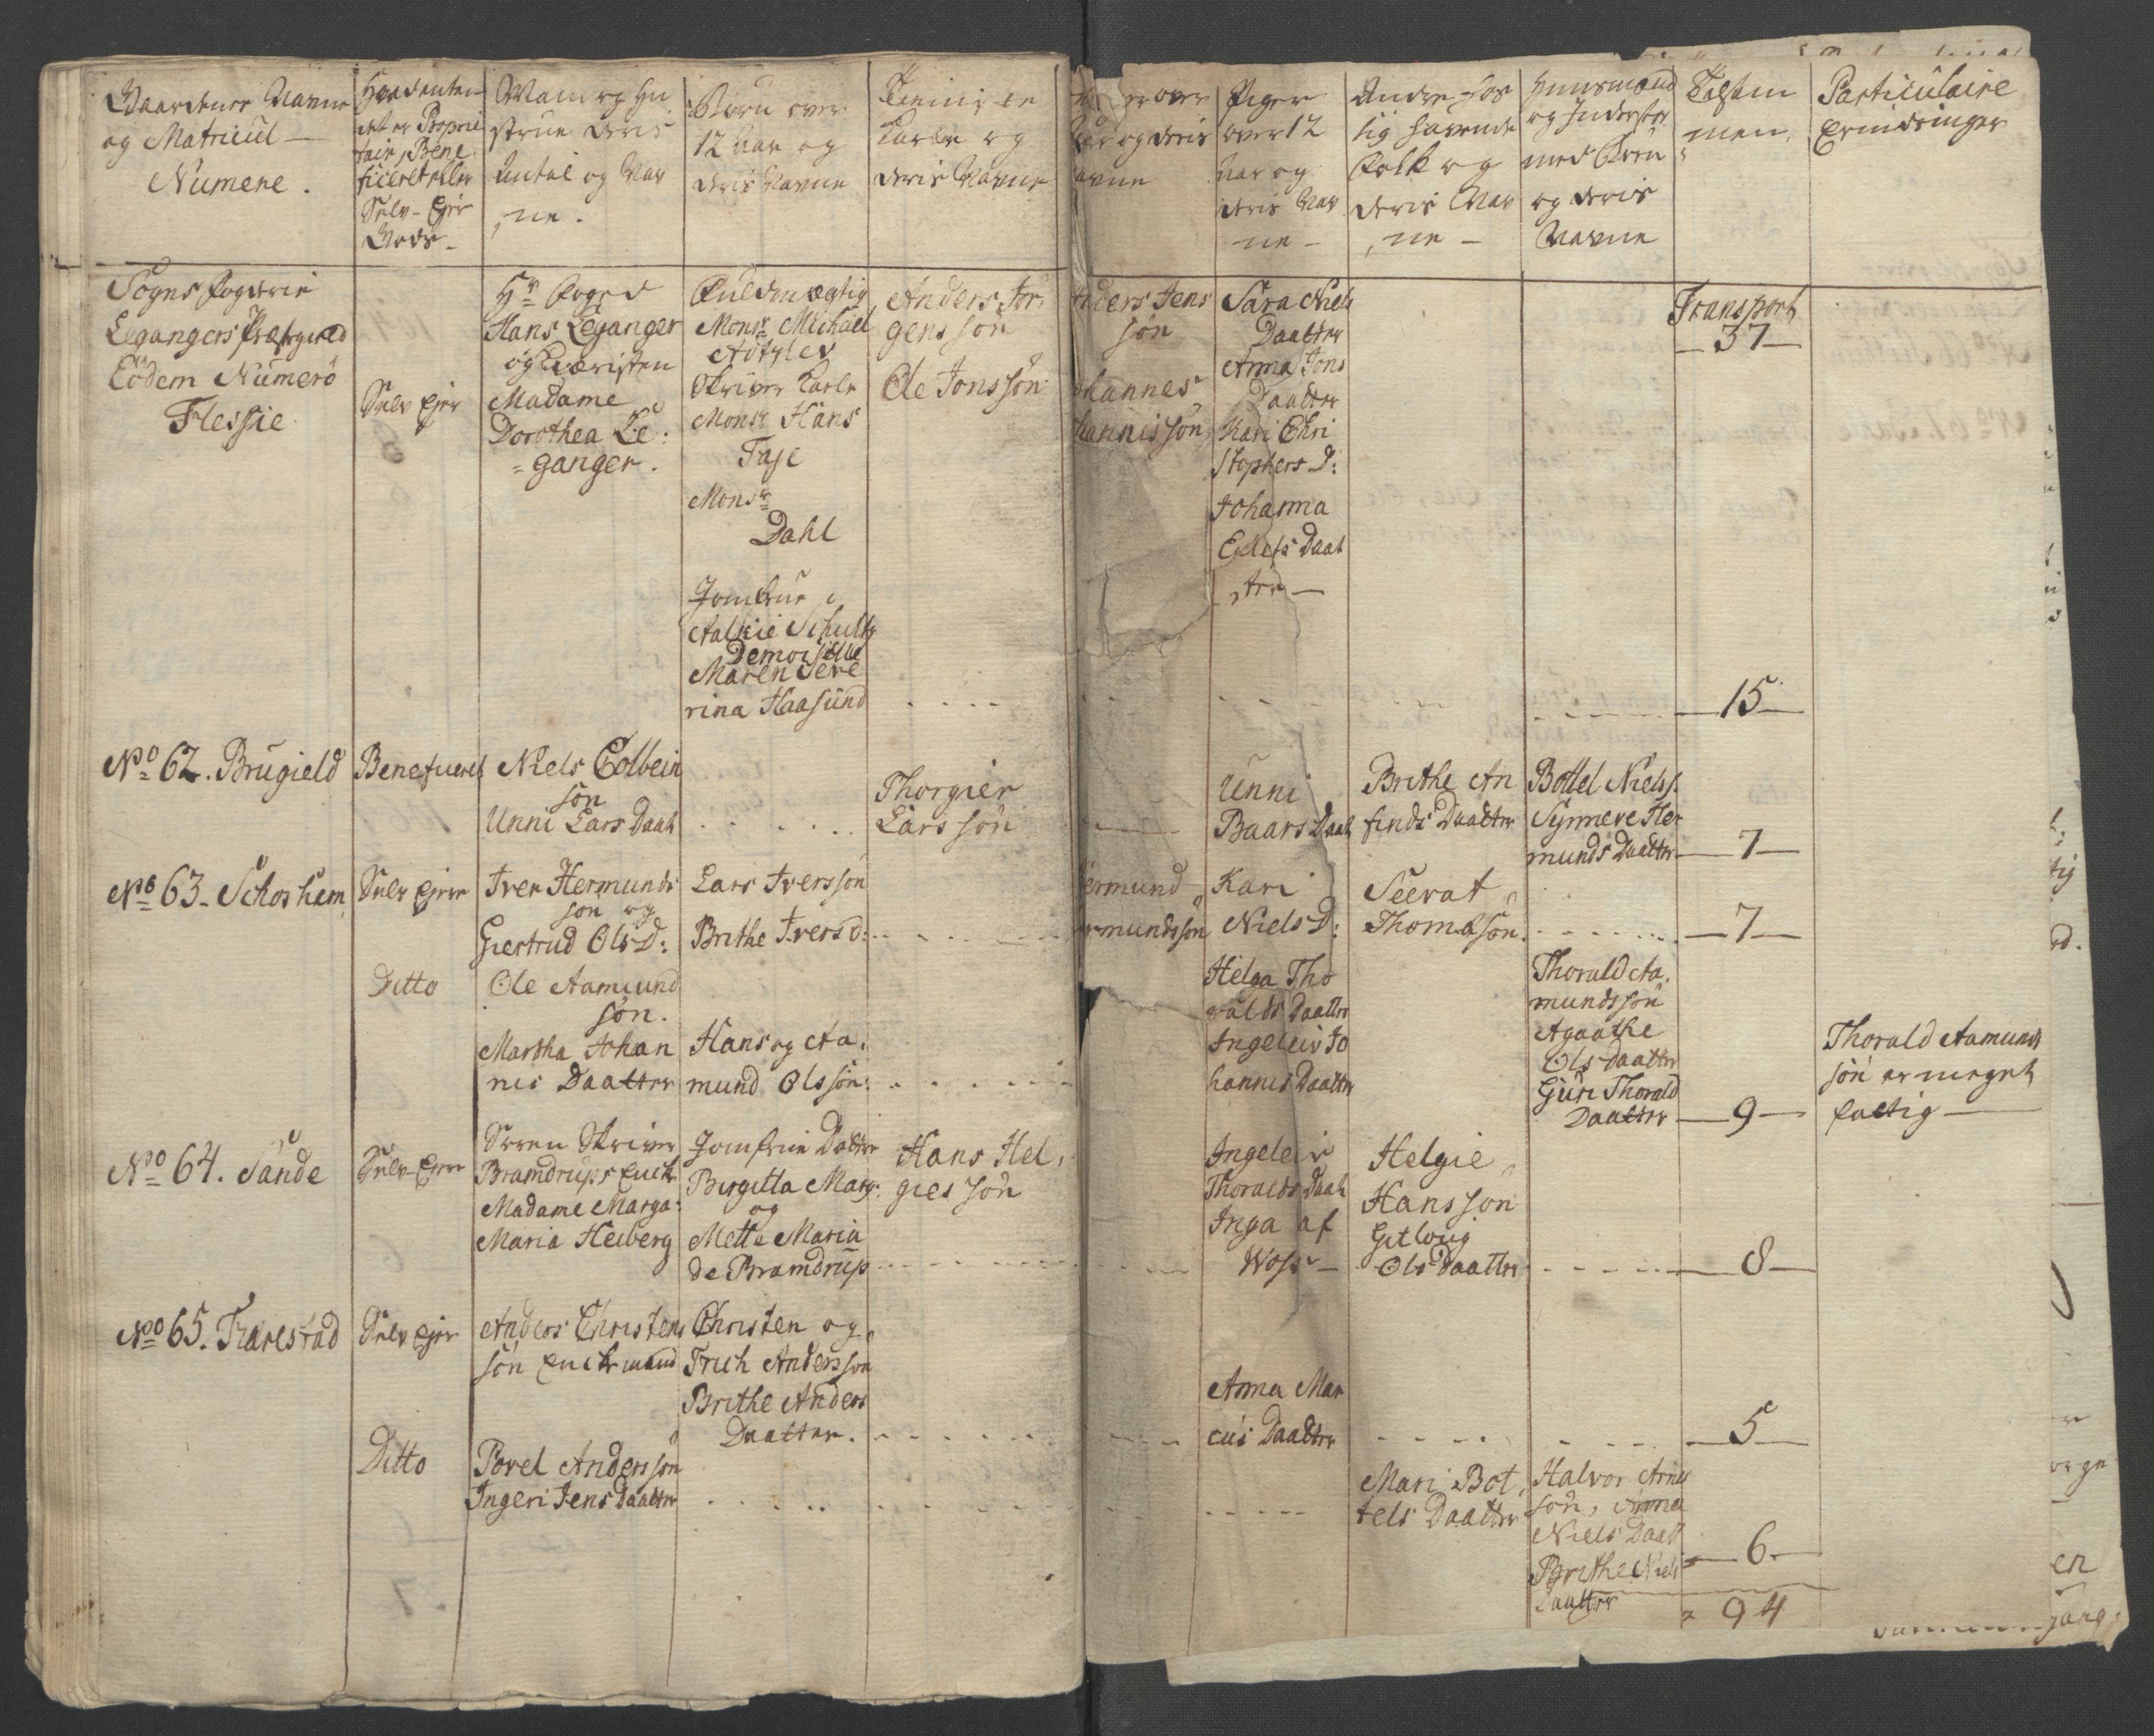 Gaardenes Navne
og Matricul -
Numere .
Hvad enten
det er Proprie
tair, Bene
ficeret eller
Selv-Ejer
Gods -
Mand og Hu
strue deris
Antal og Nav
ne .
Børn over
12 Aar og
deris Navne
Tienniste
Karle og
deris Navne
over
og deris
Navne
Piger
over 12
Aar og
deris Nav
ne -
Andre hos
sig havende
Folk og
deris Nav
ne -
Huusmænd
og Inderster
med Børn
og deris
Navne
Particulaire
Erindringer
Sogns Fogderie
Legangers Præstgield
Eodem Numero
Flessie
Selv Ejer
Hr. Foged
Hans Leganger
og Kieristen
Madame
Dorothea Le:
=ganger .
Fuldmægtig
Monsr. Michael
Skriver Karle
Monsr Hans
Faje
Monsr.
Dahl
Jomfrue
Aalkie Schultz
Demoiselle
Maren Seve
rina Haasund
Anders Jør,
gens søn
Ole Jons søn
Anders Jens
søn
Johannes
hannis søn
Sara Niels
Daatter
Anna Jons
Daatter
Kari Chri
stophers D:
Johanna
Elefs Daat
ter -
Transport
37
15
No. 62. Brugield
Beneficeret
Niels Colbein
søn
Unni Lars Daat
Thorgier
Lars søn
Unni
Baars Daat
Brithe An
finds Daatter
Bottel Niels s.
Synneve Her
munds Daatter
7
No. 63. Schoshem
Selv Ejer
Iver Hermunds
søn og
Giertrud Ols D:
Lars Ivers søn
Brithe Ivers D:
Hermund
Hermundssøn
Kari
Niels D:
Seevat
Thomæsøn
7
Ditto
Ole Aamund
søn.
Martha Johan
nis Daatter
Hans og Aa,
mund Ols søn:
Helga Tho
ralds Daatter
Ingeleiv Jo
hannis Daatter
Thorald Aa,
munds søn
Agaathe
Ols Daatter
Guri Thorald
Daatter
9
Thorald Aamunds
søn er meget
fattig
No. 64. Sande
Selv Ejer
Søren Skriver
Bramdrups Enke
Madame Marga:
Maria Heiberg
Jomfrue Dotter
Birgitta Marg:
og
Mette Maria
de Bramdrup
Hans Hel,
gies søn
Ingeleiv
Thoralds Daat
Inga af
Woss -
Helgie
Hans søn
Gitloug
Ols Daatter
8
No. 65. Fiærestad
Selv Ejer
Anders Christens
søn Enkemand
Christen og
Frich Anders søn
Brithe Anders
Daatter.
Anna Mar
cus Daatter
5
Ditto
Povel Anders søn
Ingeri Jens Daatter
Mari Bot,
tels Daatter
Halvor Arnes
søn, Anna
Niels Daat
Brithe Niels
Daatter
6
94